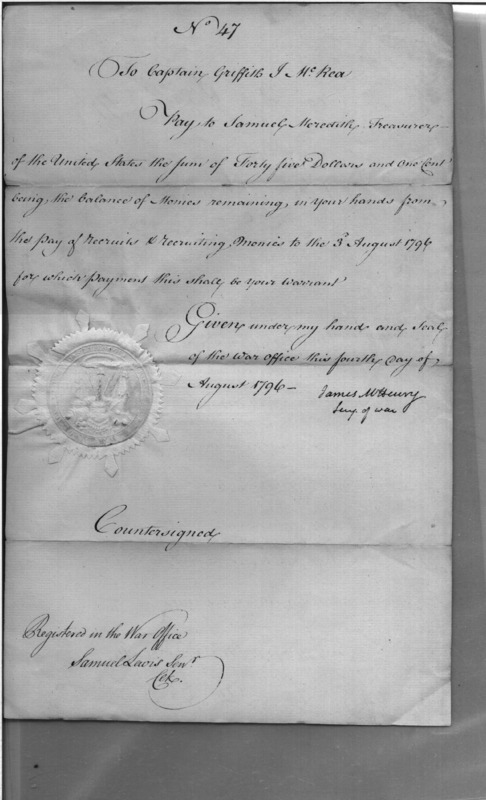 No 47
To Captain Griffith J McRea
Pay to Samuel Meredith Treasurer
of the United States the sum of Forty five Dollars and One Cent
being, the balance of Monies remaining, in your hands from
the pay of recruits & recruiting Monies to the 3d August 1796
for which payment this shall be your warrant
Given under my hand and Seal
of the War Office this fourth Day of
August 1796—
James McHenry
Secy of war
Countersigned
Registered in the War Office
Samuel Lewis Senr
Clk.